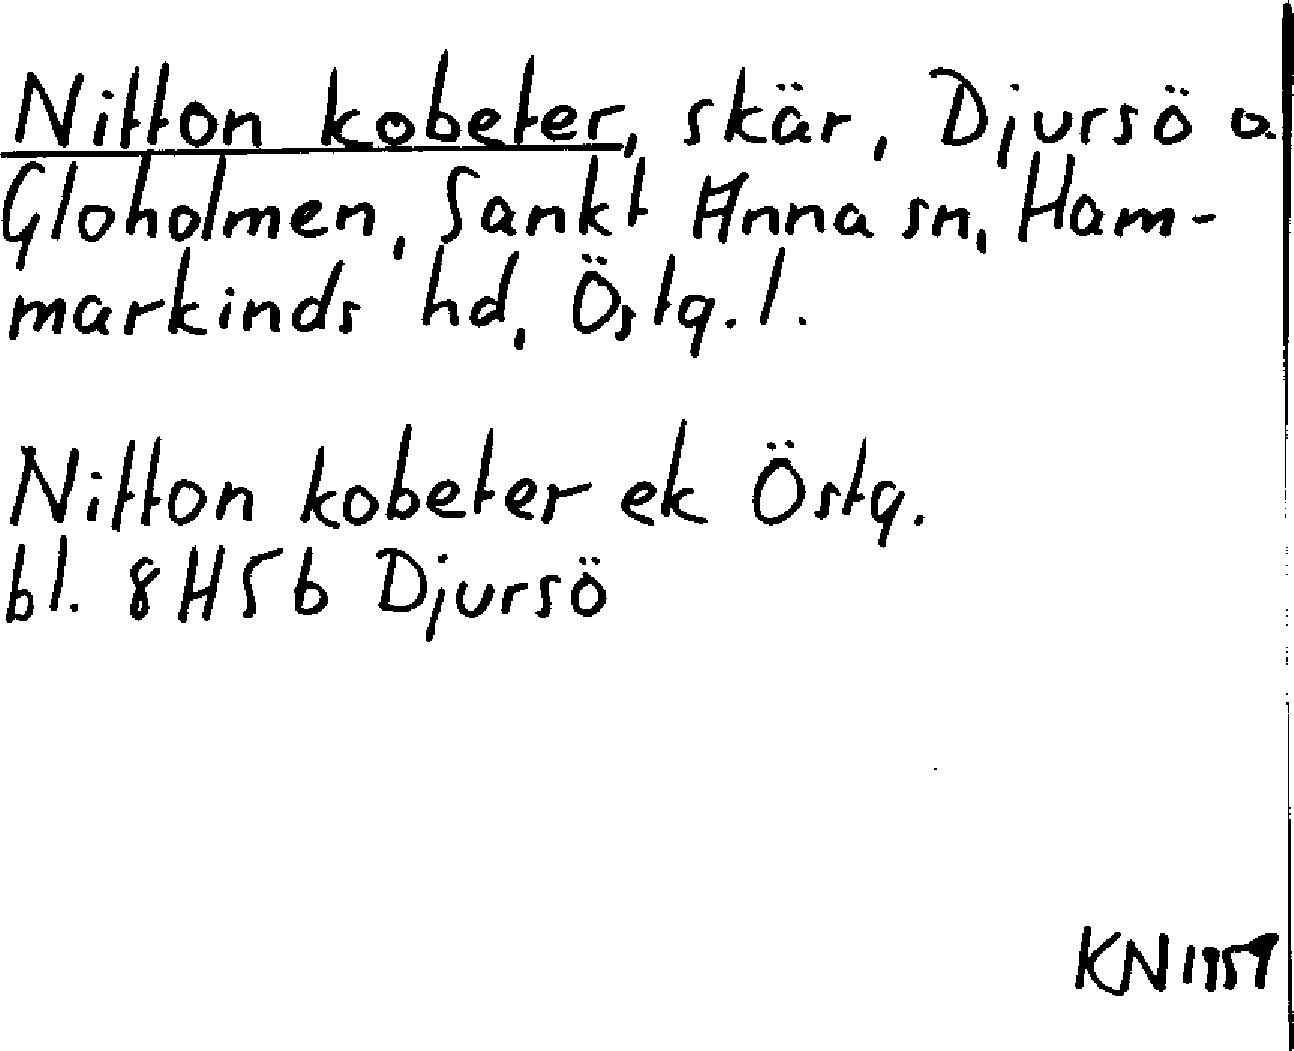 Nitton kobeter, skär, Djursö o
Gloholmen, Sankt Anna sn, Ham-
markinds hd, Östg. l.
Nitton kobeter ek Östg.
bl. 8H5b Djursö
KN 1959